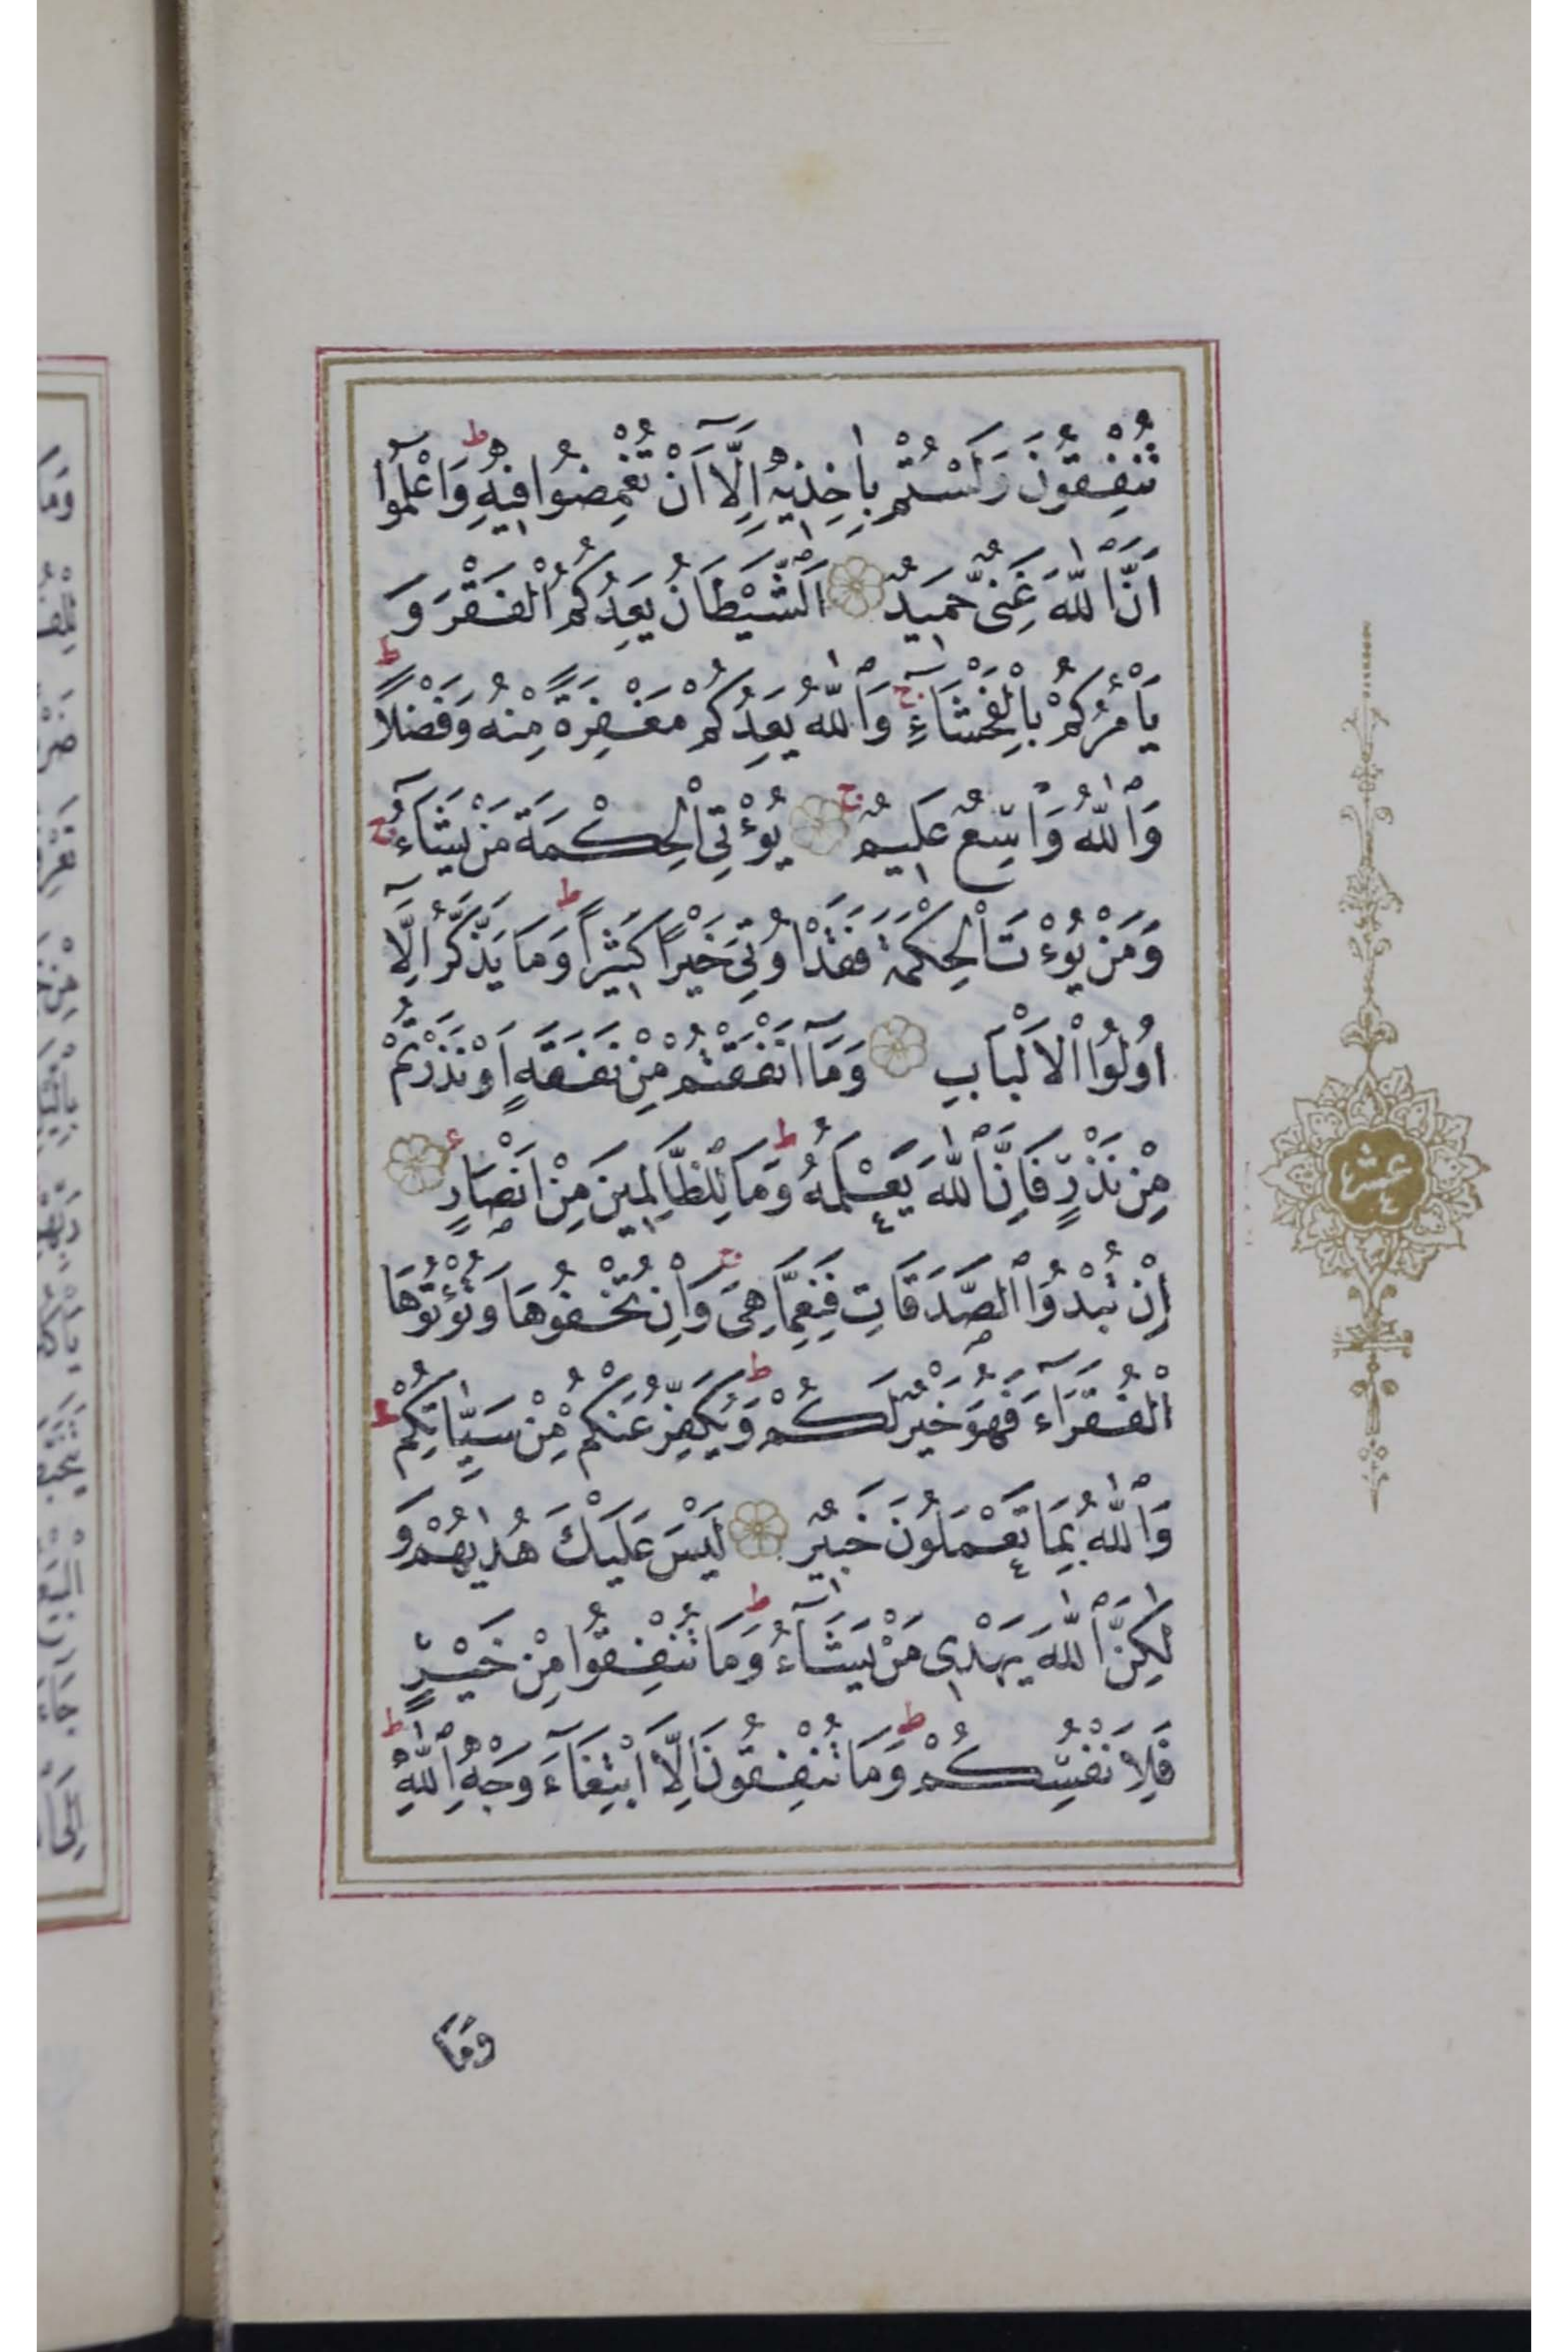 تُنْفِقُونَ وَلَسْتُمْ بِاٰخِذِيهِ اِلَّآ اَنْ تُغْمِضُوا فِيهِ ط وَاعْلَمُٓوا
اَنَّ اللّٰهَ غَنِىٌّ حَمِيدٌ اَلشَّيْطَانُ يَعِدُكُمُ الْفَقْرَ وَ
يَاْمُرُكُمْ بِالْفَحْشَاءِ ج وَاللّٰهُ يَعِدُكُمْ مَغْفِرَةً مِنْهُ وَفَضْلاً ط
وَاللّٰهُ وَاسِعٌ عَلِيمٌ ج يُؤْتِى الْحِكْمَةَ مَنْ يَشَٓاءُ ج
وَمَنْ يُؤْتَ الْحِكْمَةَ فَقَدْ اُوتِىَ خَيْرًا كَثِيرًا ط وَمَا يَذَّكَّرُ اِلَّآ
اُولُوا الْاَلْبَابِ وَمَٓا اَنْفَقْتُمْ مِنْ نَفَقَةٍ اَوْ نَذَرْتُمْ
مِنْ نَذْرٍ فَاِنَّ اللّٰهَ يَعْلَمُهُ ط وَمَا لِلظَّالِمِينَ مِنْ اَنْصَارٍ
اِنْ تُبْدُوا الصَّدَقَاتِ فَنِعِمَّا هِىَ ج وَاِنْ تُخْفُوهَا وَتُؤْتُوهَا
الْفُقَرَٓاءَ فَهُوَ خَيْرٌ لَكُمْ ط وَيُكَفِّرُ عَنْكُمْ مِنْ سَيِّاٰتِكُمْ ط
وَاللّٰهُ بِمَا تَعْمَلُونَ خَبِيرٌ لَيْسَ عَلَيْكَ هُدٰيهُمْ وَ
لٰكِنَّ اللّٰهَ يَهْدِى مَنْ يَشَٓاءُ ط وَمَا تُنْفِقُوا مِنْ خَيْرٍ
فَلِاَنْفُسِكُمْ ط وَمَا تُنْفِقُونَ اِلَّا ابْتِغَٓاءَ وَجْهِ اللّٰهِ ط
وَمَا
عشر